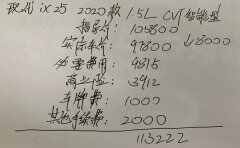 现代ix25 2020款 1.5L CVT智能型
指导价: 105800
实际车价: 97800 ↓8000
必要费用: 9815
商业险: 3912
车牌费: 1000
其他手续费: 2000
113222